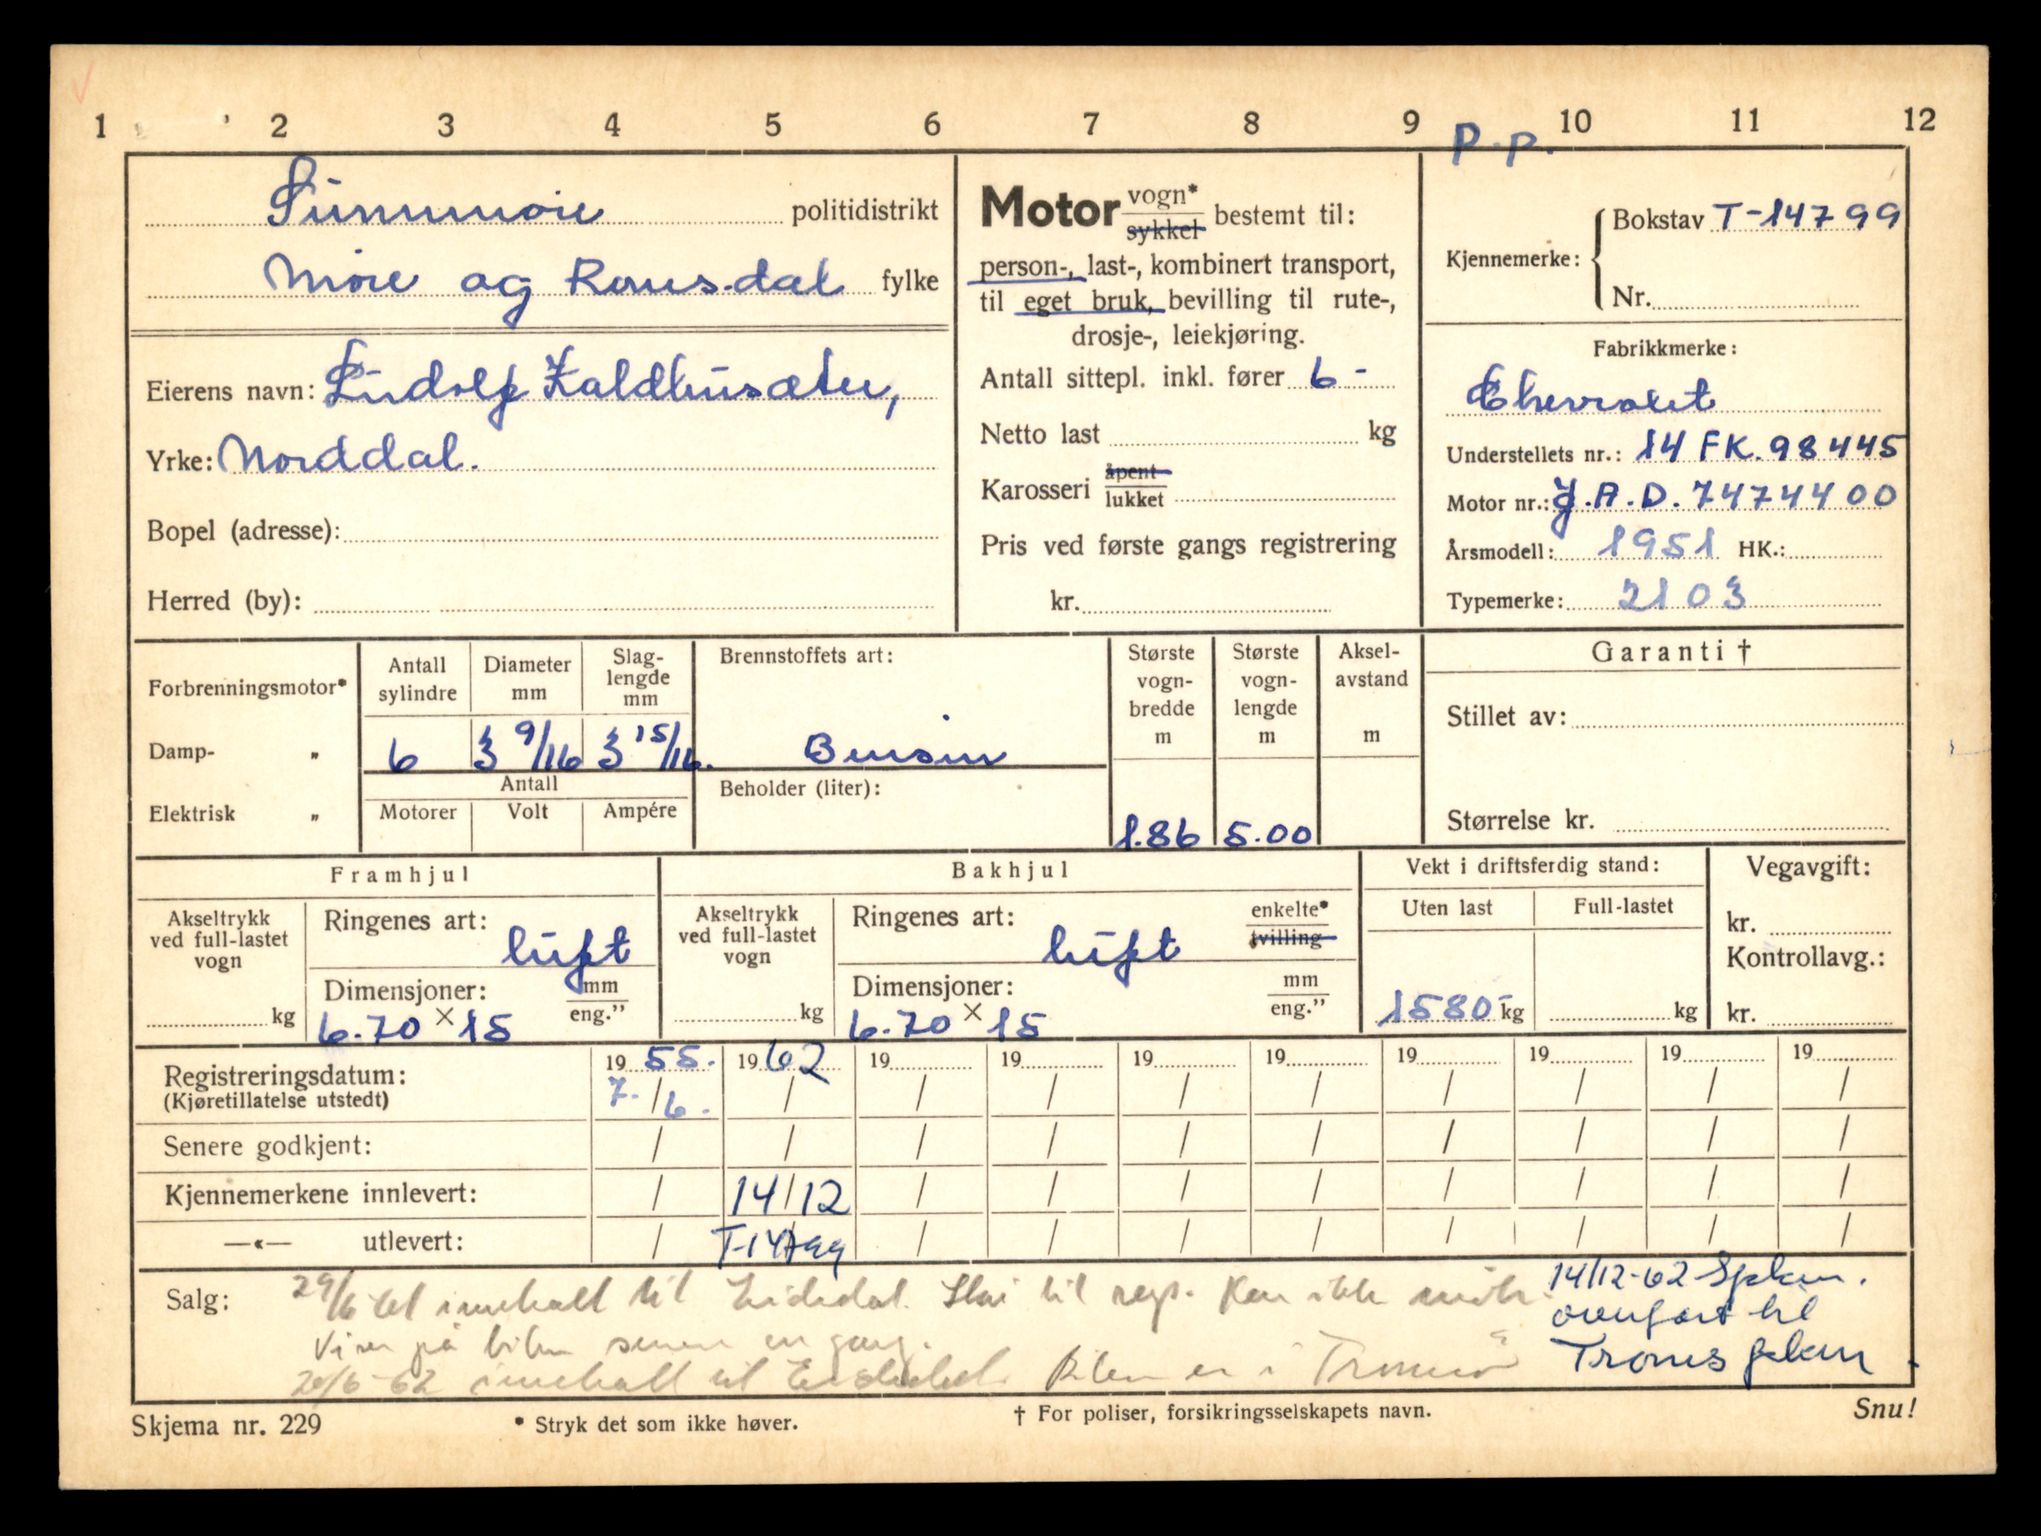 1 2 3 4 5 6 7 8 9 10 11 12
P.p.
Sunnmøre politidistrikt
Møre og Romsdal fylke
Eierens navn: Ludolf Kaldhusæter,
Yrke: Norddal.
Bopel (adresse):
Herred (by):
Motor vogn* sykkel bestemt til:
person-, last-, kombinert transport,
til eget bruk, bevilling til rute-,
drosje-, leiekjøring.
Antall sittepl. inkl. fører 6 -
Netto last kg
Karosseri åpent lukket
Pris ved første gangs registrering
kr.
Kjennemerke: Bokstav T-14799
Nr.
Fabrikkmerke:
Chevrolet
Understellets nr.: 14 FK. 98445
Motor nr.: J.A.D. 7474400
Årsmodell: 1951 HK.:
Typemerke: 2103
Forbrenningsmotor*
Damp- „
Elektrisk „
Antall sylindre
6
Diameter mm
3 9/16
Slag-
lengde
mm
3 15/16.
Antall
Motorer Volt Ampére
Brennstoffets art:
Bensin
Beholder (liter):
Største
vogn-
bredde
m
1.86
Største
vogn-
lengde
m
5.00
Aksel-
avstand
m
Garanti †
Stillet av:
Størrelse kr.
Framhjul
Akseltrykk
ved full-lastet
vogn
kg
Ringenes art: luft
Dimensjoner: mm eng.”
6.70 × 15
Bakhjul
Akseltrykk
ved full-lastet
vogn
kg
Ringenes art: luft
enkelte*
tvilling
Dimensjoner: mm eng.”
6.70 × 15
Vekt i driftsferdig stand:
Uten last Full-lastet
1580- kg kg
Vegavgift:
kr.
Kontrollavg.:
kr.
Registreringsdatum: 19 55. 19 62 19 19 19 19 19 19 19 19
(Kjøretillatelse utstedt) 7./6. / / / / / / / / /
Senere godkjent: / / / / / / / / / /
Kjennemerkene innlevert: / 14/12 / / / / / / / /
—«— utlevert: / T-14799 / / / / / / / /
Salg: 29/6 61 innkalt til Eidsdal. Skar til rep. Kan ikke møte.
Viser på bilen senere en gang.
20/6-62 innkalt til Eidsdal. Bilen er i Tromsø
14/12-62 Spkm.
overført til
Troms
Skjema nr. 229
* Stryk det som ikke høver.
† For poliser, forsikringsselskapets navn.
Snu!